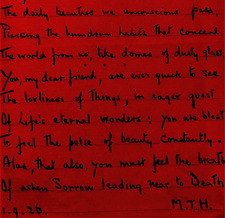 The daily beauties we unconscious pass,
Piercing the humdrum habits that conceal
The world from us, like domes of dusty glass,
You, my dear friend, are ever quick to see
The loveliness of things, in eager quest
Of Life's eternal wonders: you are blest
To feel the pulse of beauty constantly.
Alas, that also, you must feel the breath
Of ashen Sorrow leading near to Death
1.9.26. M.T.H.